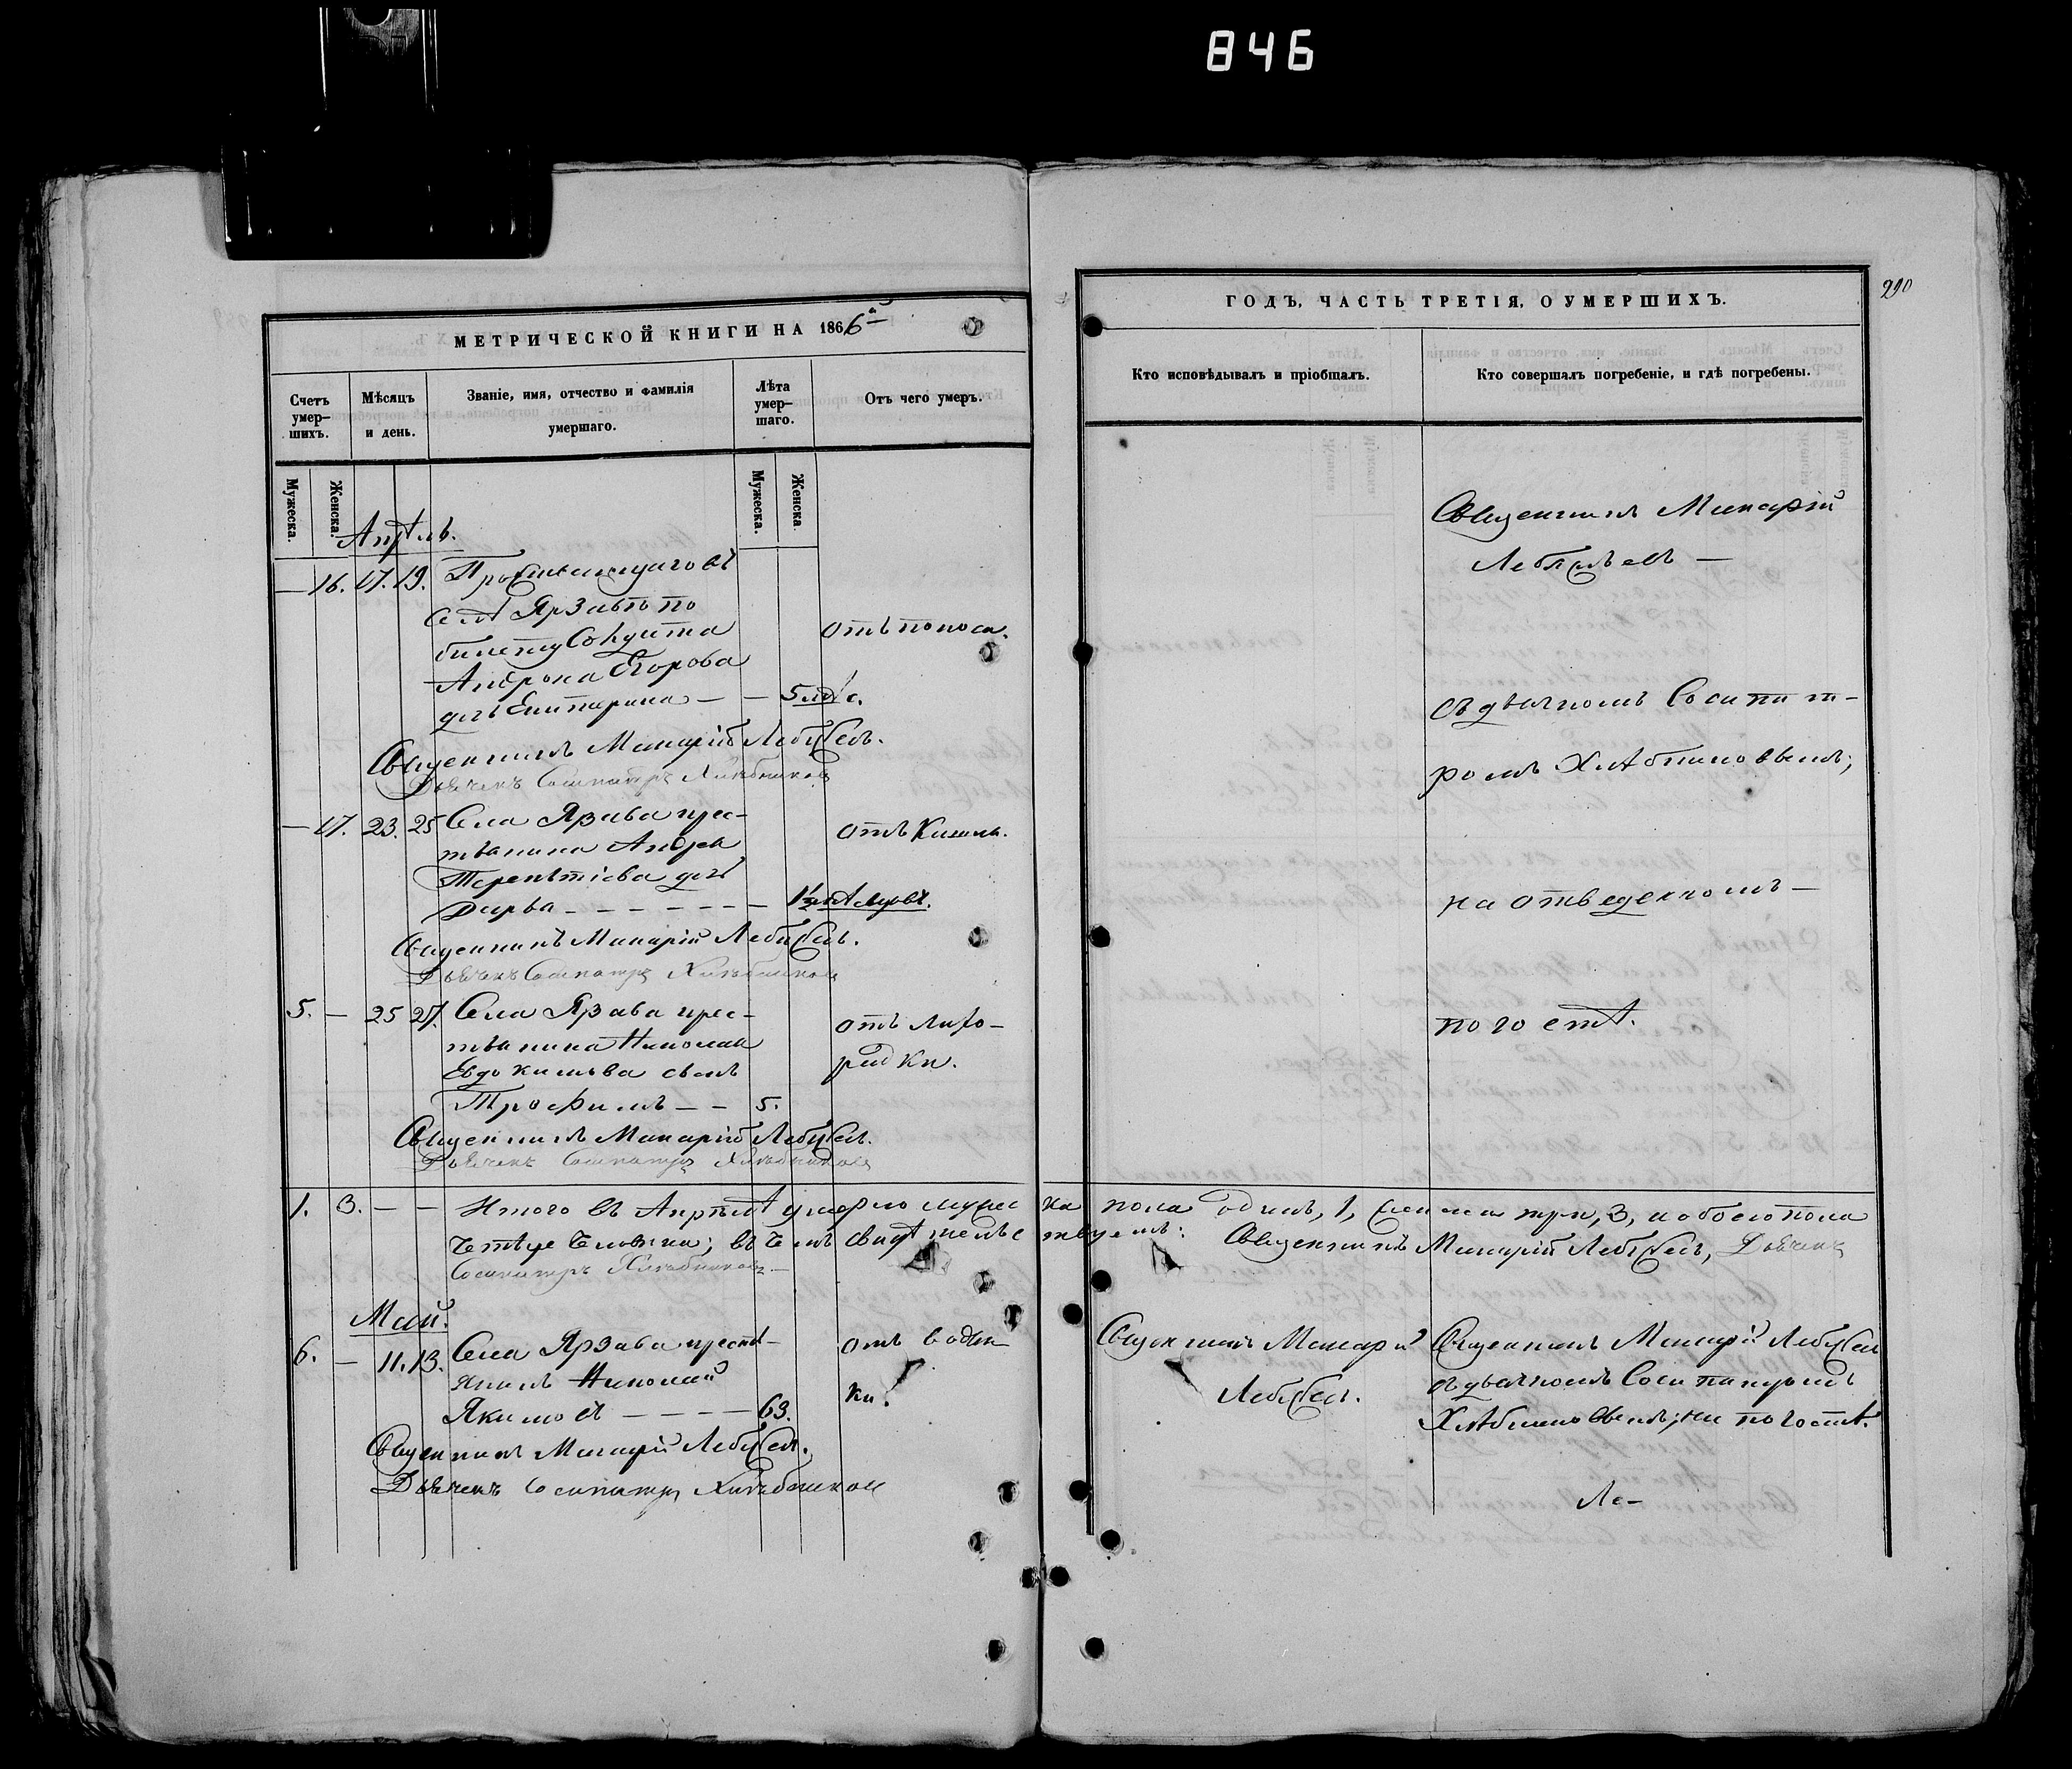 846
МЕТРИЧЕСКОЙ КНИГИ НА 1866й
Счетъ умер-шихъ.
Мѣсяцъ и день.
Званіе, имя, отчество и фамилія умершаго.
Лѣта умер-шаго.
Отъ чего умеръ.
Мужеска.
Женска.
Мужеска.
Женска.
Апрѣль.
— 16. 17. 19.
селѣ Ярзавѣ по
билету Солдата
Андрона Егорова
дочь Екатерина — — 5 мѣс.
отъ поноса.
Священникъ Макарій Лебедевъ.
Дьячекъ Сосипатръ Хлѣбниковъ
— 17. 23. 25 Села Ярзава крес-
тьянина Андрея
Терентіева дочь
Дарья — — — — — — 1½ мѣсяцовъ.
отъ Кашля.
Священникъ Макарій Лебедевъ.
Дьячекъ Сосипатръ Хлѣбниковъ
5. — 25 27. Села Ярзава крес-
тьянина Николая
Евдокимова сынъ
Трофимъ — — 5.
отъ лихо-
радки.
Священникъ Макарій Лебедевъ.
Дьячекъ Сосипатръ Хлѣбниковъ
1. 3. — — Итого въ Апрѣлѣ умерло мужес
четыре человѣка; въ чемъ свидѣтельс
Сосипатръ Хлѣбниковъ. —
Май.
6. — 11. 13. Села Ярзава кресть-
янинъ Николай
Якимовъ — — — — 63.
отъ водян
ки.
Священникъ Макарій Лебедевъ.
Дьячекъ Сосипатръ Хлѣбниковъ
290
ГОДЪ, ЧАСТЬ ТРЕТІЯ, О УМЕРШИХЪ.
Кто исповѣдывалъ и пріобщалъ.
Кто совершалъ погребеніе, и гдѣ погребены.
Священникъ Макарій
Лебедевъ —
съ дьячкомъ Сосипат-
ромъ Хлѣбниковымъ;
на отведенномъ —
погостѣ.
ка пола одинъ, 1, женска три, 3, и обоего пола
твуемъ: Священникъ Макарій Лебедевъ, Дьячекъ
Священникъ Макарій
Лебедевъ.
Священникъ Макарій Лебедевъ
съ дьячкомъ Сосипатромъ
Хлѣбниковымъ; на погостѣ.
Ле-